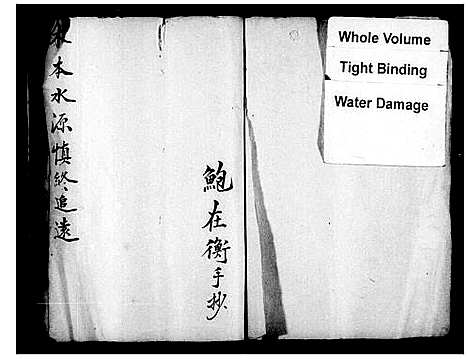 本水源慎終追遠
鮑在衡手抄
Whole Volume
Tight Binding
Water Damage